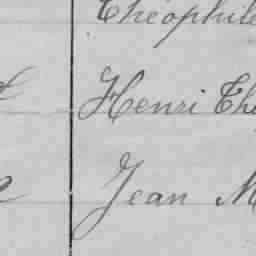 Théophile
Henri Thé
Jean M